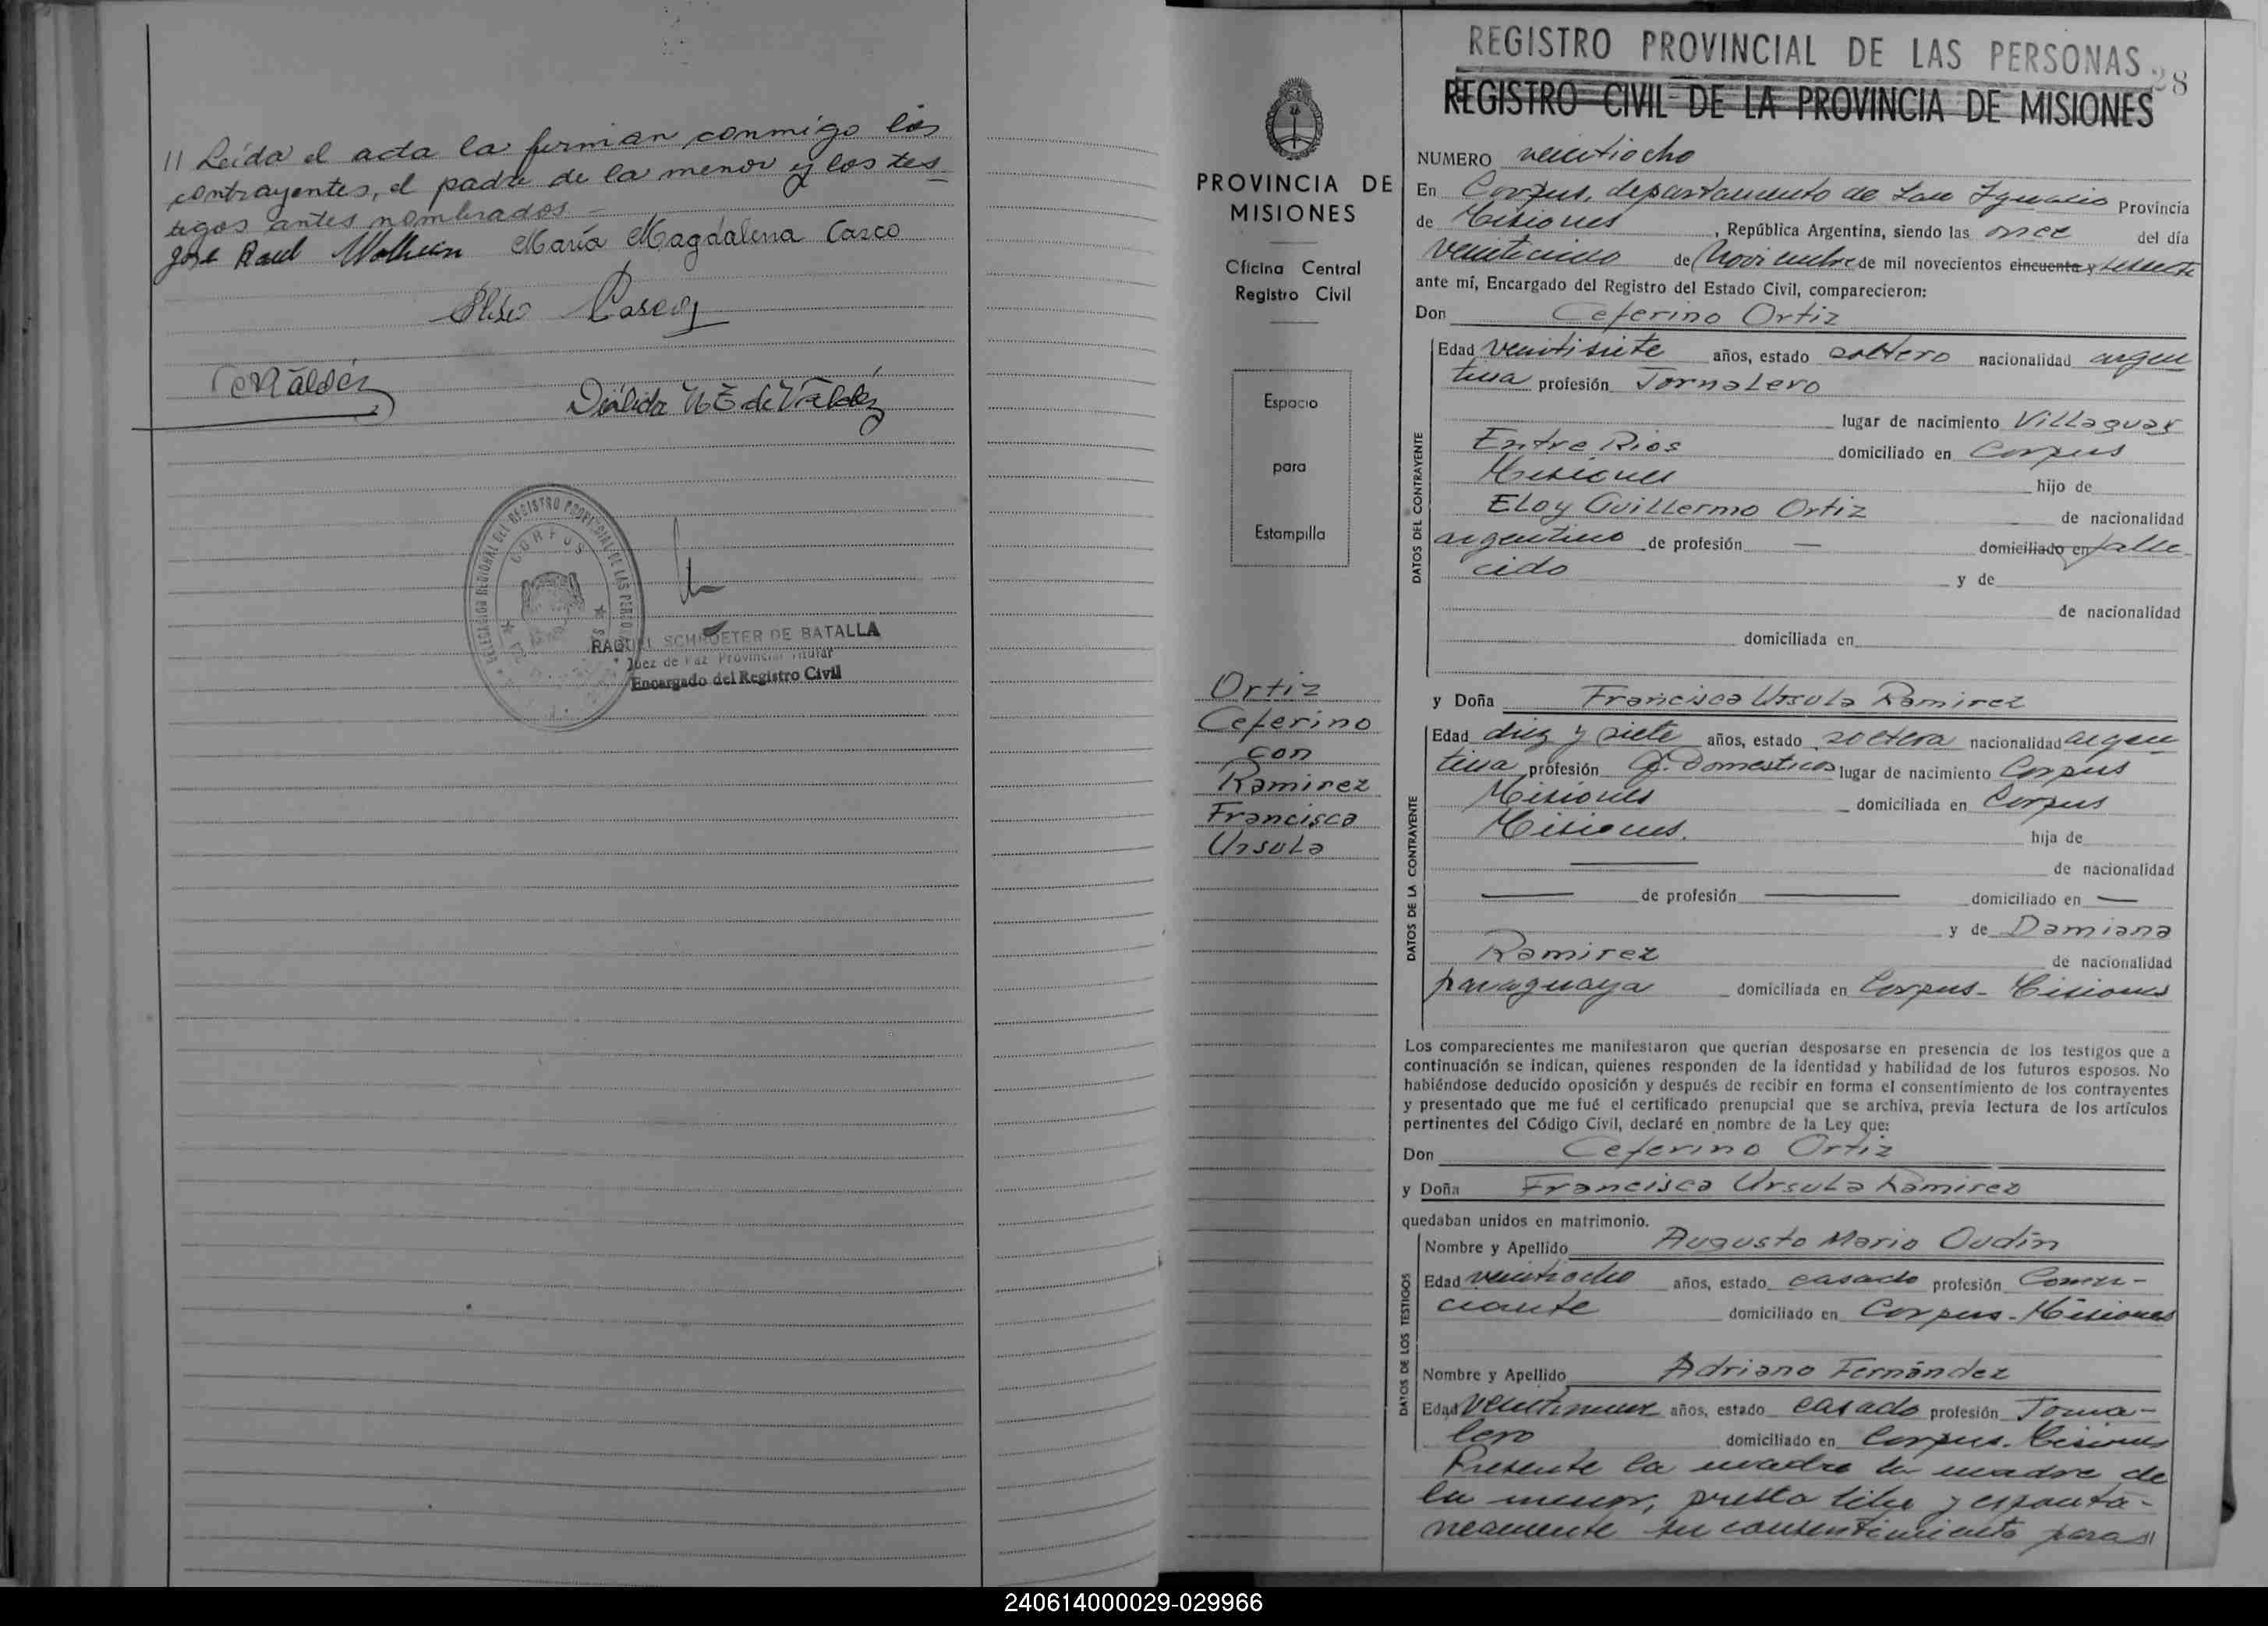 // Leída el acta la firman conmigo los
contrayentes, el padre de la menor y los tes
tigos antes nombrados -
José Raul María Magdalena Casco
Eliseo Casco
Valdéz de Valdéz
DELEGACION REGIONAL DEL REGISTRO PROVINCIAL DE LAS PERSONAS
CORPUS
RAQUEL SCHROETER DE BATALLA
Juez de Paz Provincial Titular
Encargado del Registro Civil
PROVINCIA DE
MISIONES
Oficina Central
Registro Civil
Espacio
para
Estampilla
Ortiz
Ceferino
con
Ramirez
Francisca
Ursula
REGISTRO PROVINCIAL DE LAS PERSONAS
28
REGISTRO CIVIL DE LA PROVINCIA DE MISIONES
NUMERO veintiocho
En Corpus, departamento de San Ignacio Provincia
de Misiones, República Argentina, siendo las once del día
veinticinco de Noviembre de mil novecientos cincuenta y sesenta
ante mí, Encargado del Registro del Estado Civil, comparecieron:
Don Ceferino Ortiz
DATOS DEL CONTRAYENTE
Edad veintisiete años, estado soltero nacionalidad argen
tina profesión Jornalero
lugar de nacimiento Villaguay
Entre Rios domiciliado en Corpus
Misiones hijo de
Eloy Guillermo Ortiz de nacionalidad
argentino de profesión — domiciliado en falle
cido y de
de nacionalidad
domiciliada en
y Doña Francisca Ursula Ramirez
DATOS DE LA CONTRAYENTE
Edad diez y siete años, estado soltera nacionalidad argen
tina profesión Q. Domesticos lugar de nacimiento Corpus
Misiones domiciliada en Corpus
Misiones. hija de
— de nacionalidad
— de profesión — domiciliado en —
y de Damiana
Ramirez de nacionalidad
paraguaya domiciliada en Corpus - Misiones
Los comparecientes me manifestaron que querían desposarse en presencia de los testigos que a
continuación se indican, quienes responden de la identidad y habilidad de los futuros esposos. No
habiéndose deducido oposición y después de recibir en forma el consentimiento de los contrayentes
y presentado que me fué el certificado prenupcial que se archiva, previa lectura de los artículos
pertinentes del Código Civil, declaré en nombre de la Ley que:
Don Ceferino Ortiz
y Doña Francisca Ursula Ramirez
quedaban unidos en matrimonio.
DATOS DE LOS TESTIGOS
Nombre y Apellido Augusto Mario Oudín
Edad veintiocho años, estado casado profesión Comer-
ciante domiciliado en Corpus - Misiones
Nombre y Apellido Adriano Fernández
Edad veintinueve años, estado casado profesión Jorna-
lero domiciliado en Corpus. Misiones
Presente la madre la madre de
la menor, presta libre y espontá-
neamente su consentimiento para //
240614000029-029966